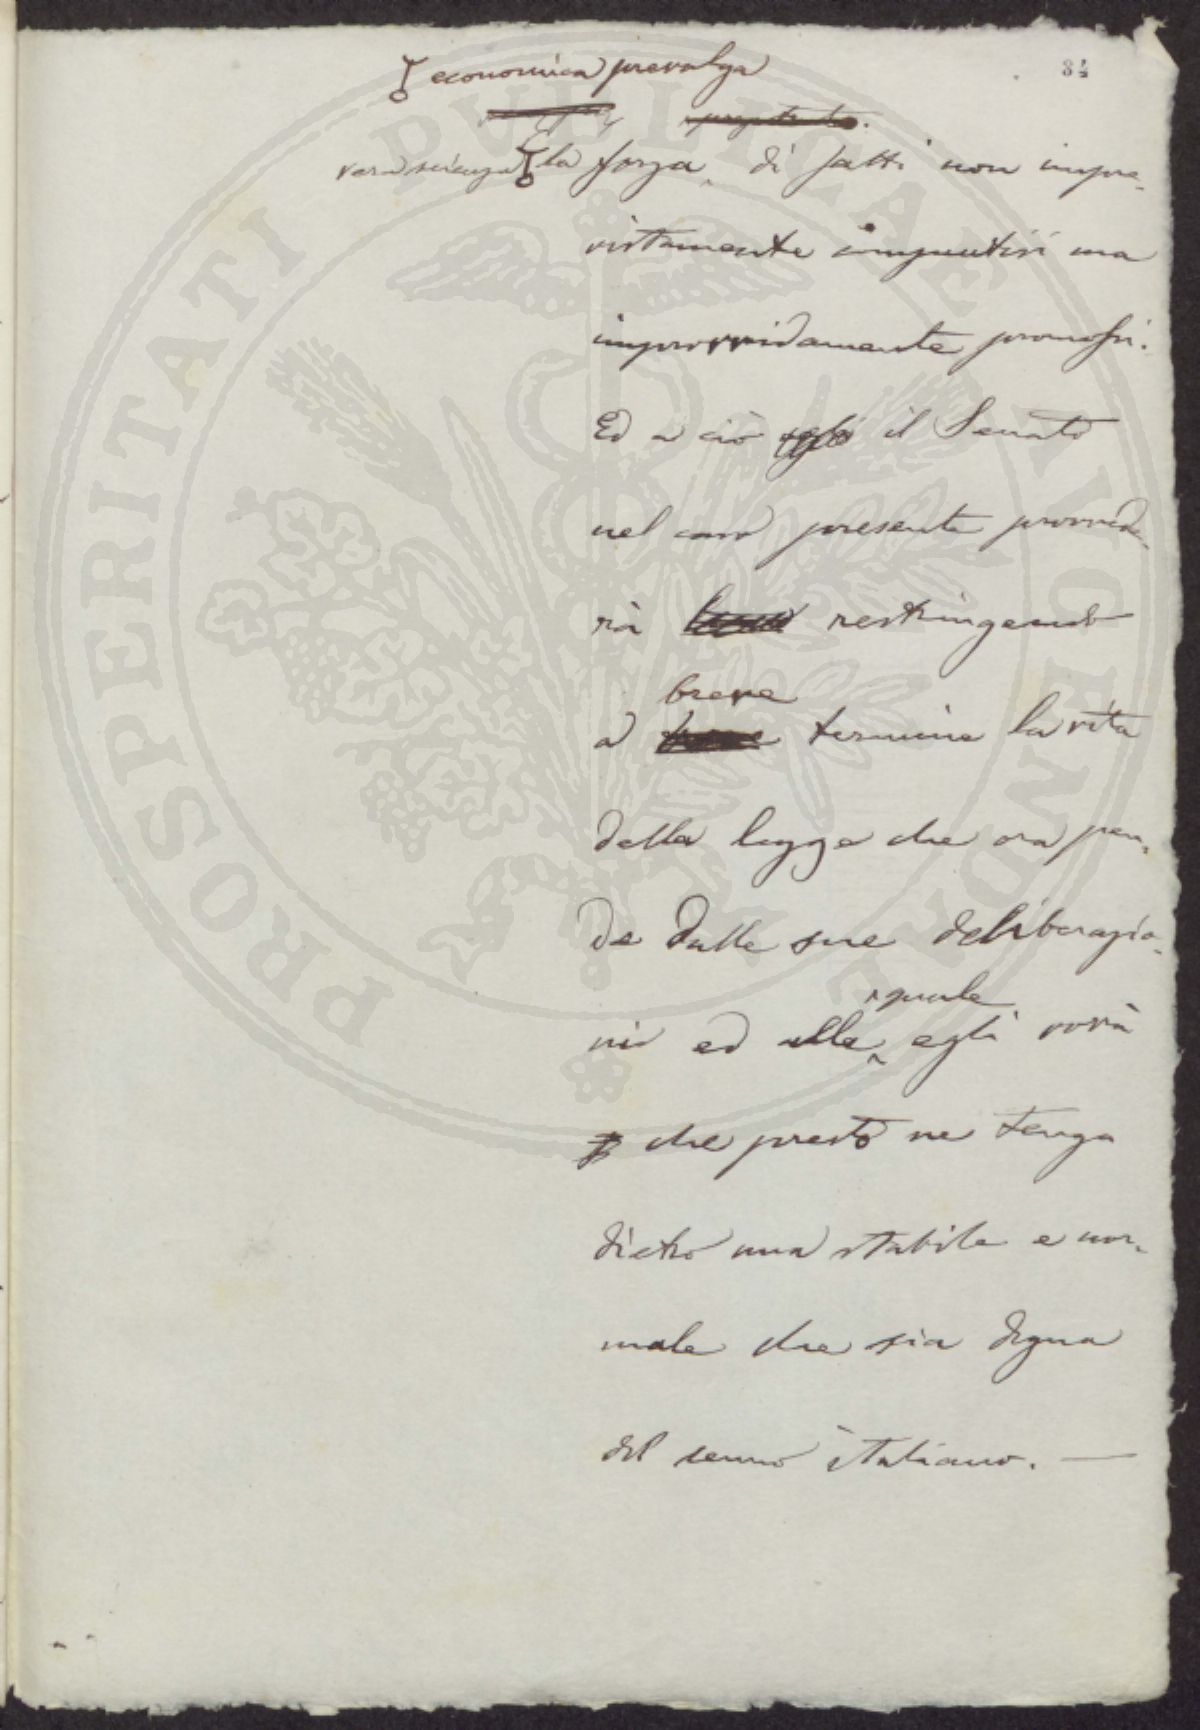 34
economica prevalga
vera scienza la forza di fatti non impre-
vistamente imputisi ma
improvvidamente promossi.
Ed a ciò il Senato
nel caso presente provvede-
rà restringendo
breve
a termine la vita
della legge che ora pen-
de dalle sue deliberazio-
ni ed alla egli vorrà
quale
che presto ne tenga
dietro una stabile e nor-
male che sia degna
del senno italiano. —
PROSPERITATI PUBLICAE AUGENDAE